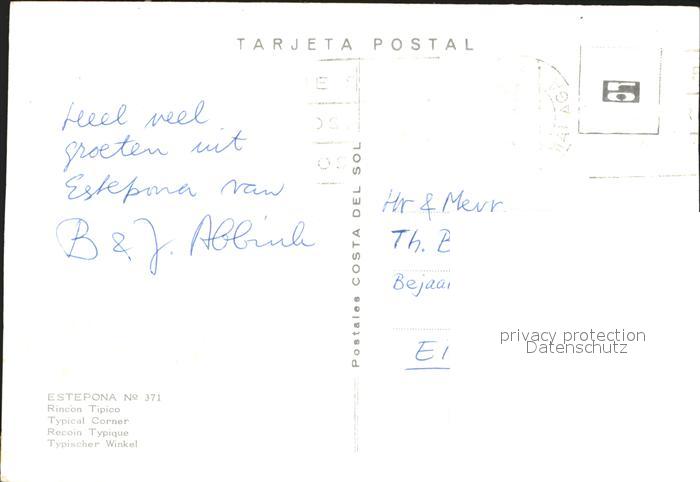 TARJETA POSTAL
Heel veel
groeten uit
Estepona van
B & J. Abbink
Postales COSTA DEL SOL
Hr & Mevr.
Th. B
Bejaa
E
ESTEPONA Nº 371
Rincón Tipico
Typical Corner
Recoin Typique
Typischer Winkel
privacy protection
Datenschutz